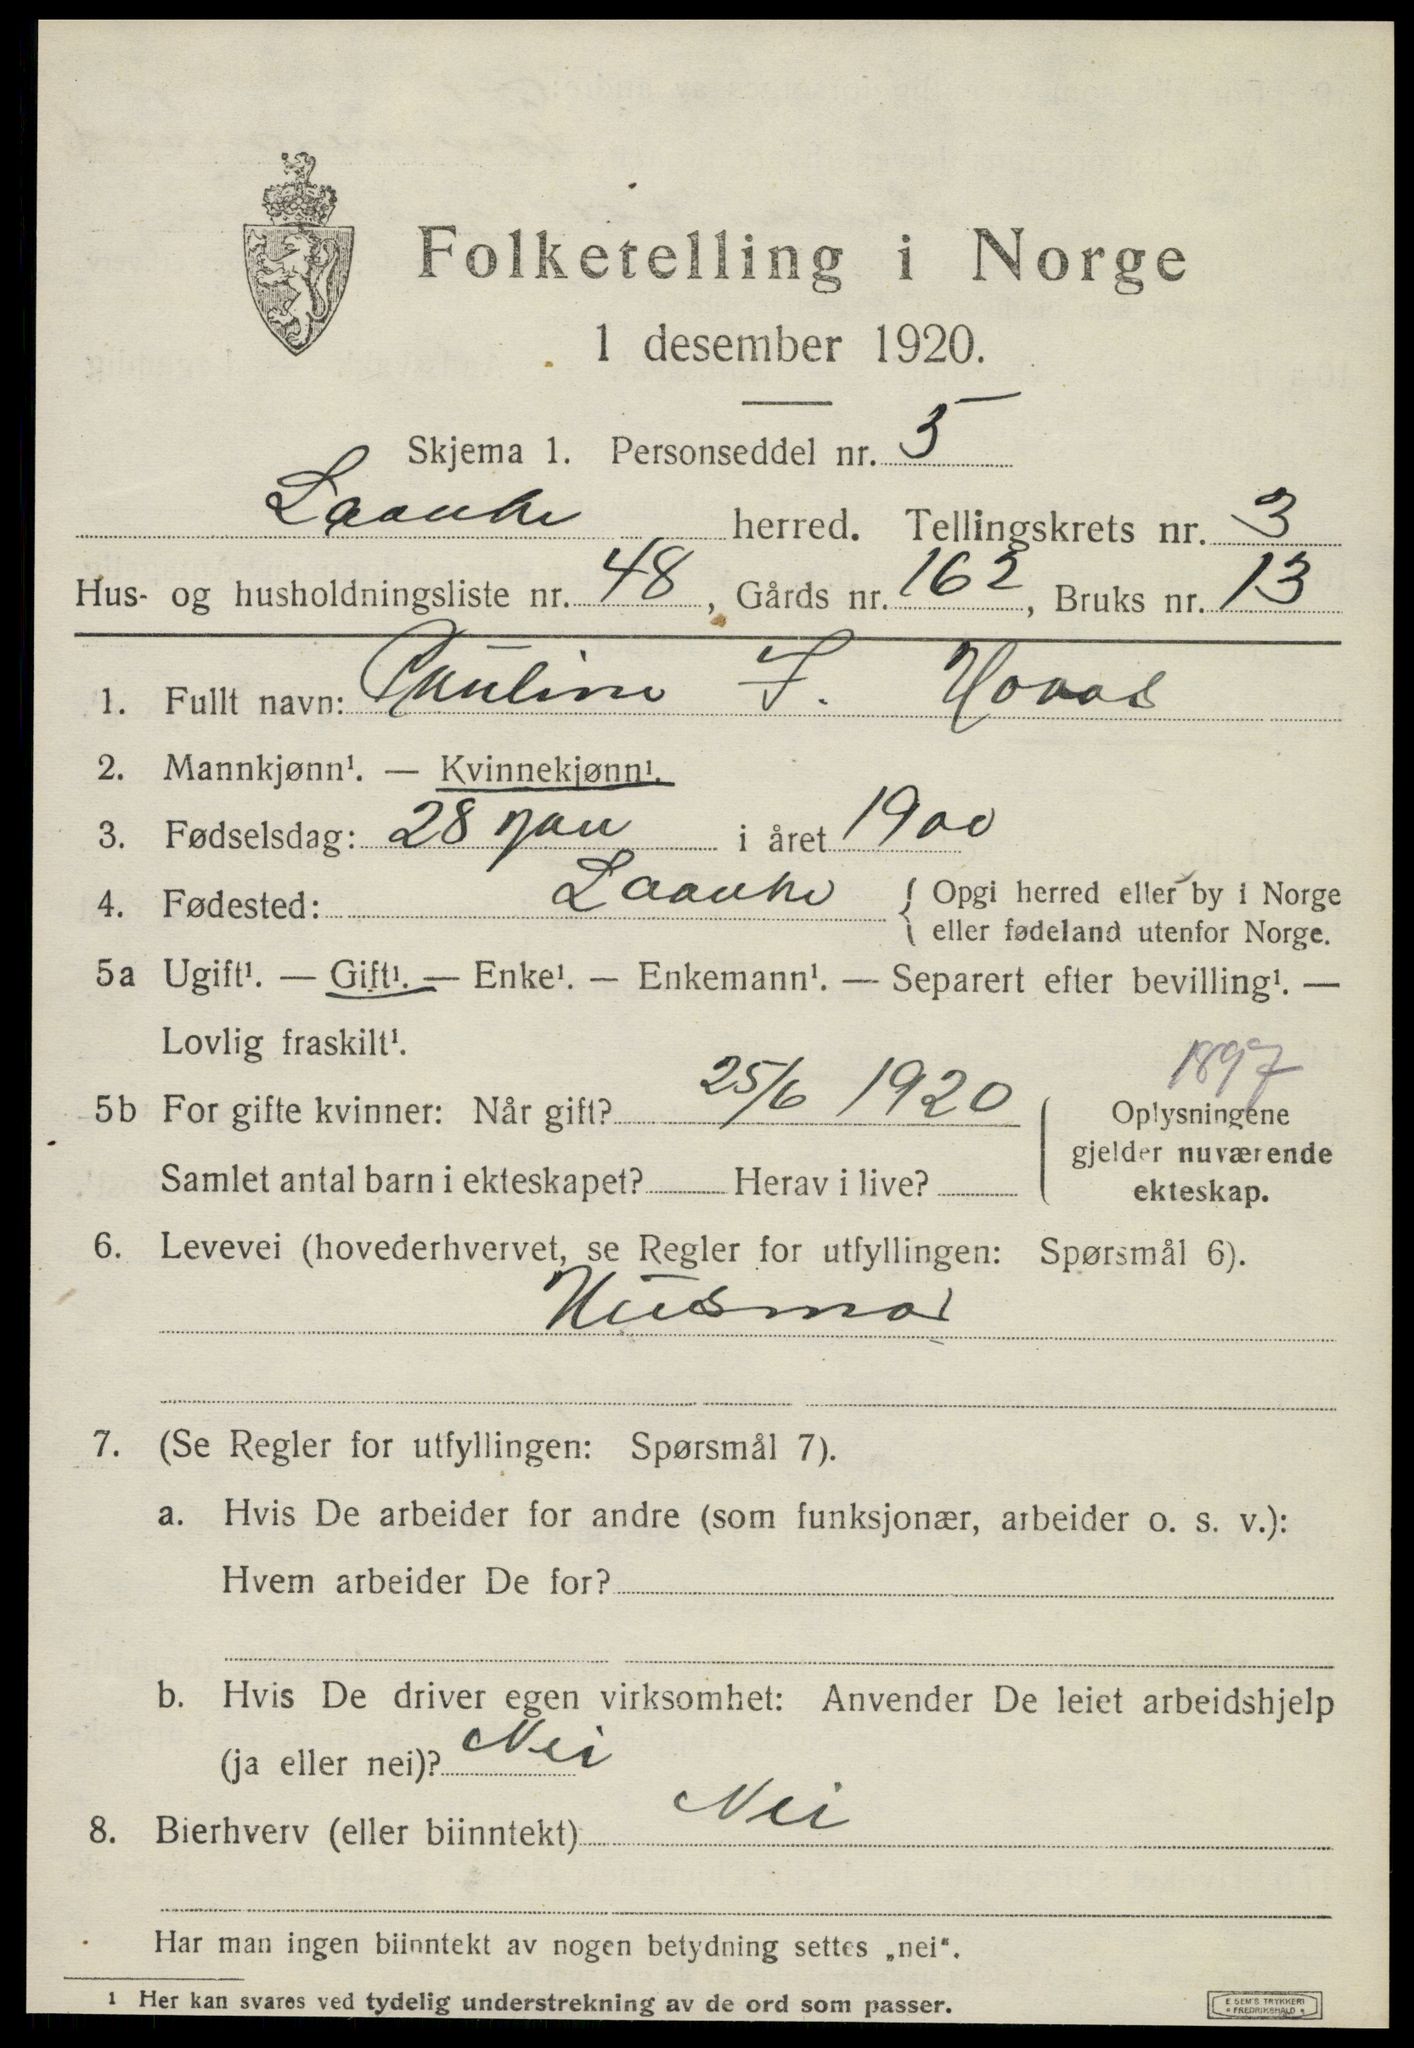 Folketelling i Norge
1 desember 1920.
Skjema 1. Personseddel nr. 5
Laanke herred. Tellingskrets nr. 3
Hus- og husholdningsliste nr. 48, Gårds nr. 162, Bruks nr. 13
1. Fullt navn: Pauline F. Hovas
2. Mannkjønn¹. — Kvinnekjønn¹.
3. Fødselsdag: 28 jan i året 1900
4. Fødested: Laanke { Opgi herred eller by i Norge
eller fødeland utenfor Norge.
5a Ugift¹. — Gift¹. — Enke¹. — Enkemann¹. — Separert efter bevilling¹. —
Lovlig fraskilt¹.
1897
5b For gifte kvinner: Når gift? 25/6 1920 Oplysningene
gjelder nuværende
Samlet antal barn i ekteskapet? Herav i live? ekteskap.
6. Levevei (hovederhvervet, se Regler for utfyllingen: Spørsmål 6).
Husmor
7. (Se Regler for utfyllingen: Spørsmål 7).
a. Hvis De arbeider for andre (som funksjonær, arbeider o. s. v.):
Hvem arbeider De for?
b. Hvis De driver egen virksomhet: Anvender De leiet arbeidshjelp
(ja eller nei)? Nei
8. Bierhverv (eller biinntekt) Nei
Har man ingen biinntekt av nogen betydning settes „nei“.
1 Her kan svares ved tydelig understrekning av de ord som passer.
E SEM'S TRYKKERI
FREDRIKSHALD